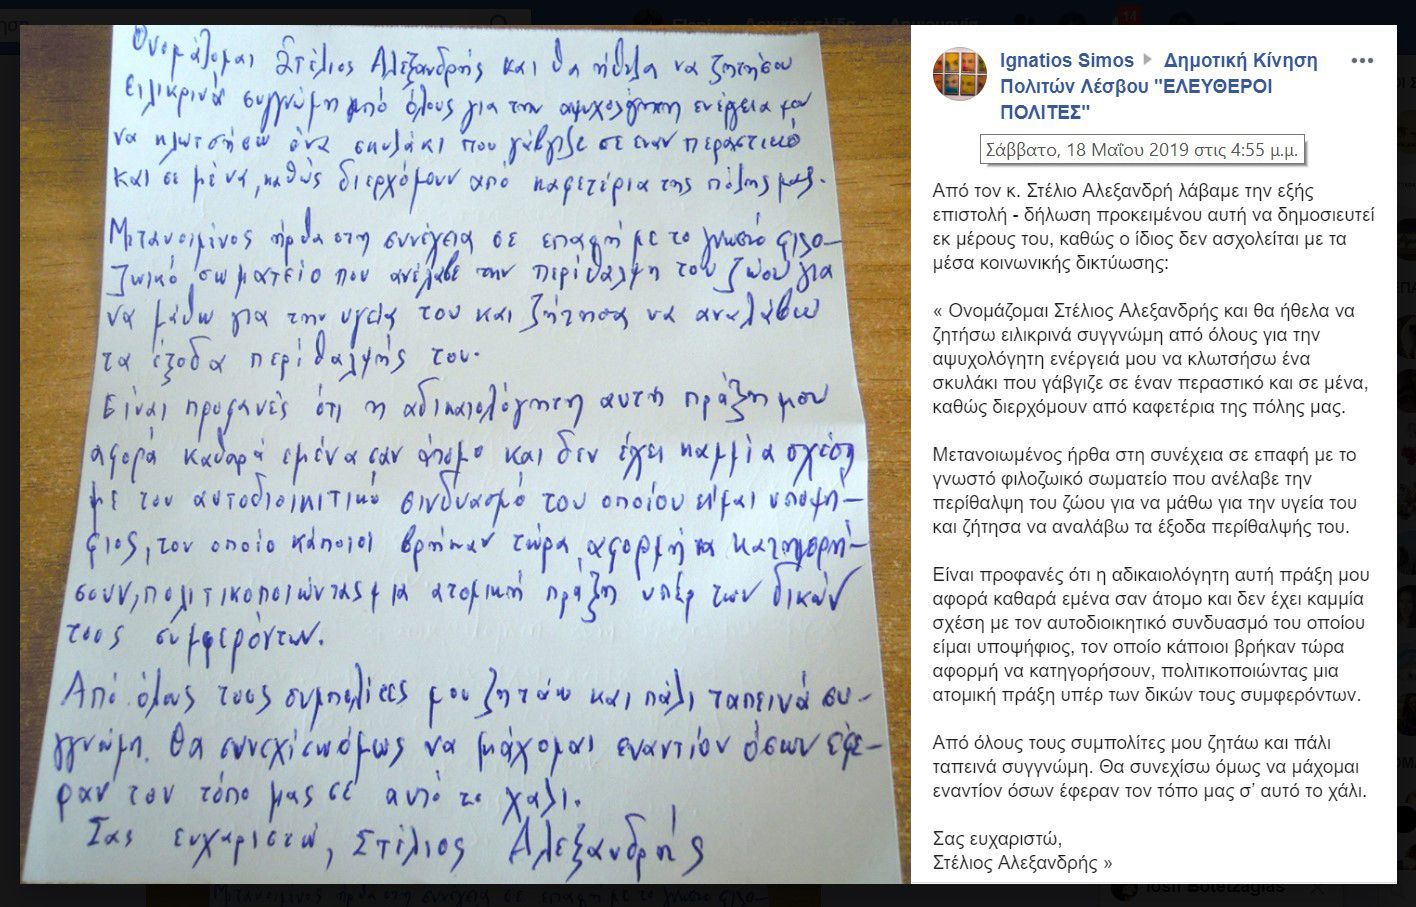 Ονομάζομαι Στέλιος Αλεξανδρής και θα ήθελα να ζητήσω
ειλικρινά συγγνώμη από όλους για την αψυχολόγητη ενέργεια μου
να κλωτσήσω ένα σκυλάκι που γάβγιζε σε έναν περαστικό
και σε μένα, καθώς διερχόμουν από καφετέρια της πόλης μας.
Μετανοιμένος ήρθα στη συνέχεια σε επαφή με το γνωστό φιλο-
ζωικό σωματείο που ανέλαβε την περίθαλψη του ζώου για
να μάθω για την υγεία του και ζήτησα να αναλάβω
τα έξοδα περίθαλψής του.
Είναι προφανές ότι η αδικαιολόγητη αυτή πράξη μου
αφορά καθαρά εμένα σαν άτομο και δεν έχει καμμία σχέση
με τον αυτοδιοικιτικό σινδυασμό του οποίου είμαι υποψή-
φιος, τον οποίο κάποιοι βρήκαν τώρα αφορμή να κατηγορή-
σουν, πολιτικοποιώντας μια ατομική πράξη υπέρ των δικών
τους συμφερόντων.
Από όλους τους συμπολίτες μου ζητάω και πάλι ταπεινά συ-
γγνώμη. Θα συνεχίσω όμως να μάχομαι εναντίον όσων έφε-
ραν τον τόπο μας σε αυτό το χάλι.
Σας ευχαριστώ, Στέλιος Αλεξανδρής
Ignatios Simos ▸ Δημοτική Κίνηση
Πολιτών Λέσβου "ΕΛΕΥΘΕΡΟΙ
ΠΟΛΙΤΕΣ"
Σάββατο, 18 Μαΐου 2019 στις 4:55 μ.μ.
Από τον κ. Στέλιο Αλεξανδρή λάβαμε την εξής
επιστολή - δήλωση προκειμένου αυτή να δημοσιευτεί
εκ μέρους του, καθώς ο ίδιος δεν ασχολείται με τα
μέσα κοινωνικής δικτύωσης:
« Ονομάζομαι Στέλιος Αλεξανδρής και θα ήθελα να
ζητήσω ειλικρινά συγγνώμη από όλους για την
αψυχολόγητη ενέργειά μου να κλωτσήσω ένα
σκυλάκι που γάβγιζε σε έναν περαστικό και σε μένα,
καθώς διερχόμουν από καφετέρια της πόλης μας.
Μετανοιωμένος ήρθα στη συνέχεια σε επαφή με το
γνωστό φιλοζωικό σωματείο που ανέλαβε την
περίθαλψη του ζώου για να μάθω για την υγεία του
και ζήτησα να αναλάβω τα έξοδα περίθαλψής του.
Είναι προφανές ότι η αδικαιολόγητη αυτή πράξη μου
αφορά καθαρά εμένα σαν άτομο και δεν έχει καμμία
σχέση με τον αυτοδιοικητικό συνδυασμό του οποίου
είμαι υποψήφιος, τον οποίο κάποιοι βρήκαν τώρα
αφορμή να κατηγορήσουν, πολιτικοποιώντας μια
ατομική πράξη υπέρ των δικών τους συμφερόντων.
Από όλους τους συμπολίτες μου ζητάω και πάλι
ταπεινά συγγνώμη. Θα συνεχίσω όμως να μάχομαι
εναντίον όσων έφεραν τον τόπο μας σ' αυτό το χάλι.
Σας ευχαριστώ,
Στέλιος Αλεξανδρής »